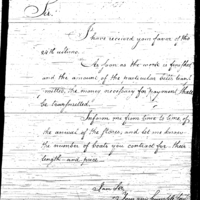 Sir.
I have received your favor of the
28th ultimo.
As soon as the work is finished
and the amount of the particular
the money necessary for payment shall
be transmitted.
Inform me from time to time, of
the arrival of the pieces, and let me know
the number of boats you contract for their
length and
I am Sir